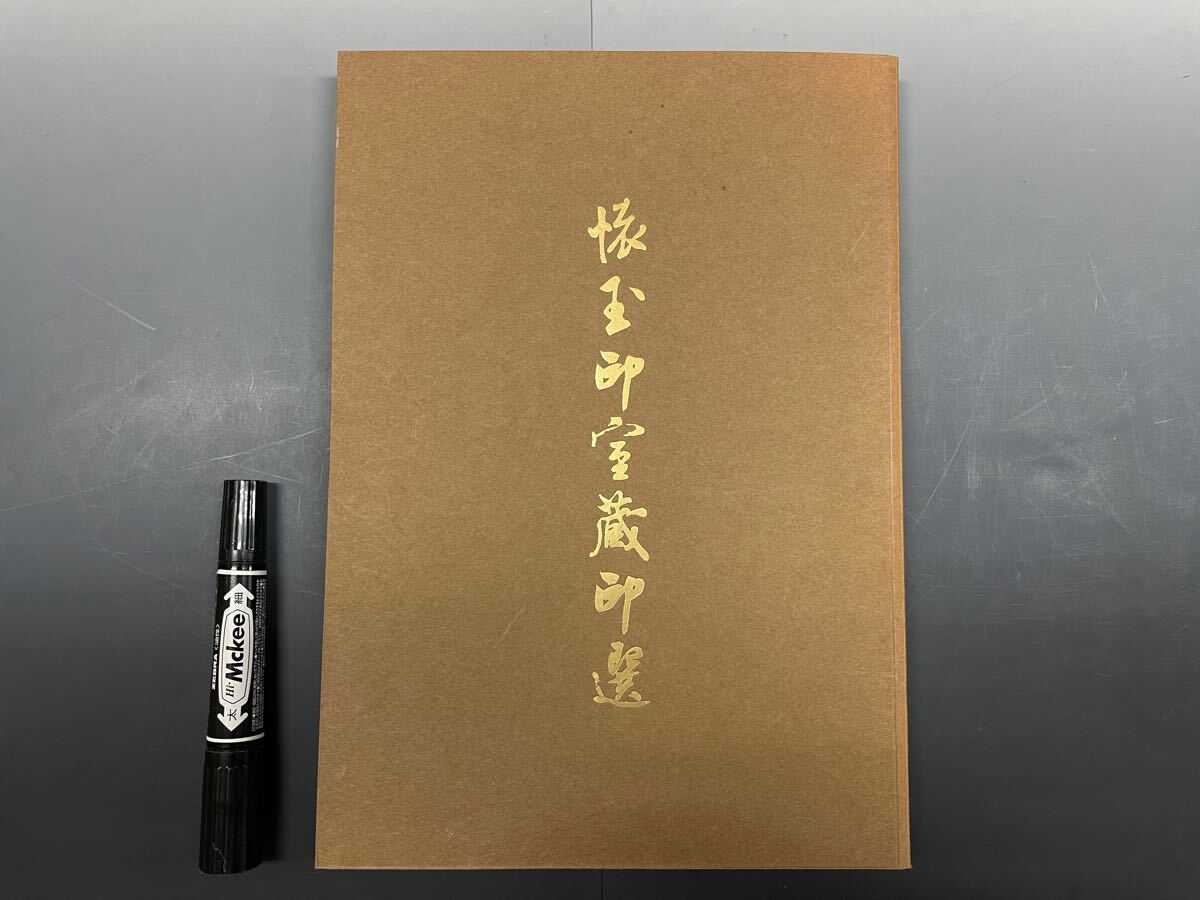 懐玉印室蔵印選
ZEBRA 〈油性〉
細 Hi-Mckee 太